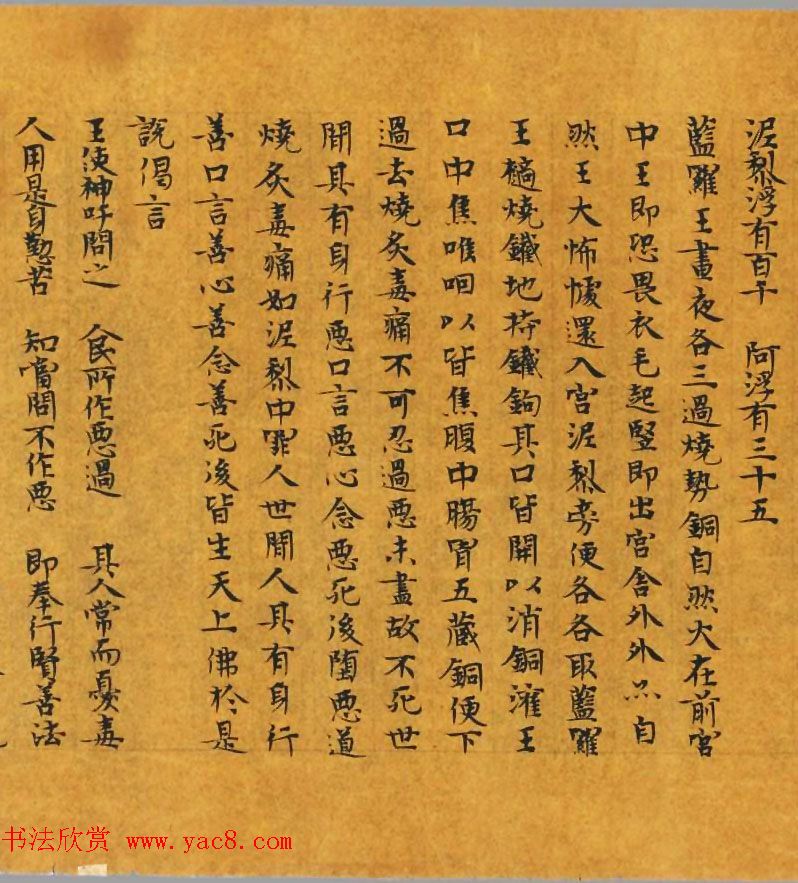 泥犁浮有百千　阿浮有三十五
藍羅王晝夜各三過燒熱銅自然火在前宮
中王即恐畏衣毛起豎即出宮舍外外亦自
然王大怖懅還入宮泥犁旁便各各取藍羅
王擿燒鐵地持鐵鉤其口皆開以消銅灌王
口中焦唯咽以皆焦腹中腸胃五藏銅便下
過去燒炙毒痛不可忍過惡未盡故不死世
間其有身行惡口言惡心念惡死後墮惡道
燒炙毒痛如泥犁中罪人世間人其有身行
善口言善心善念善死後皆生天上佛於是
說偈言
王使神呼問之　人民所作惡過　其人常而憂毒
人用是身懃苦　知當問不作惡　即奉行賢善法
书法欣赏 www.yac8.com